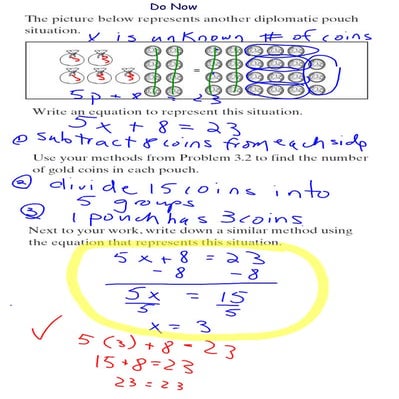 Do Now
The picture below represents another diplomatic pouch
situation.
x is unknown # of coins
3 3
3 3 3
=
5p + 8 = 23
Write an equation to represent this situation.
5x + 8 = 23
① subtract 8 coins from each side
Use your methods from Problem 3.2 to find the number
of gold coins in each pouch.
② divide 15 coins into
5 groups
③ 1 pouch has 3 coins
Next to your work, write down a similar method using
the equation that represents this situation.
5x + 8 = 23
- 8 - 8
5x/5 = 15/5
x = 3
✓ 5(3) + 8 = 23
15 + 8 = 23
23 = 23